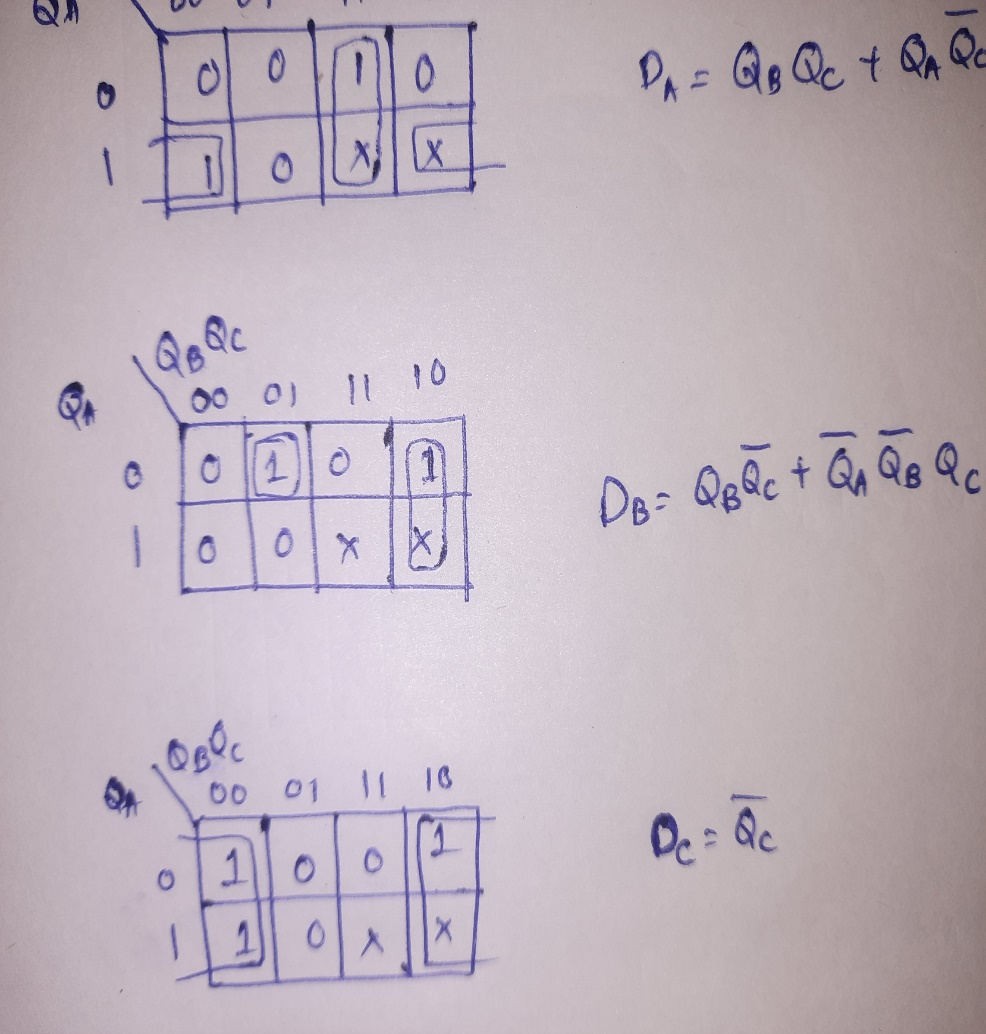 QA 00 01 11
0 0 0 1 0
1 1 0 x x
DA = QB QC + QA Q̅C
QB QC
QA 00 01 11 10
0 0 1 0 1
1 0 0 x x
DB = QB Q̅C + Q̅A Q̅B QC
QB QC
QA 00 01 11 10
0 1 0 0 1
1 1 0 x x
DC = Q̅C